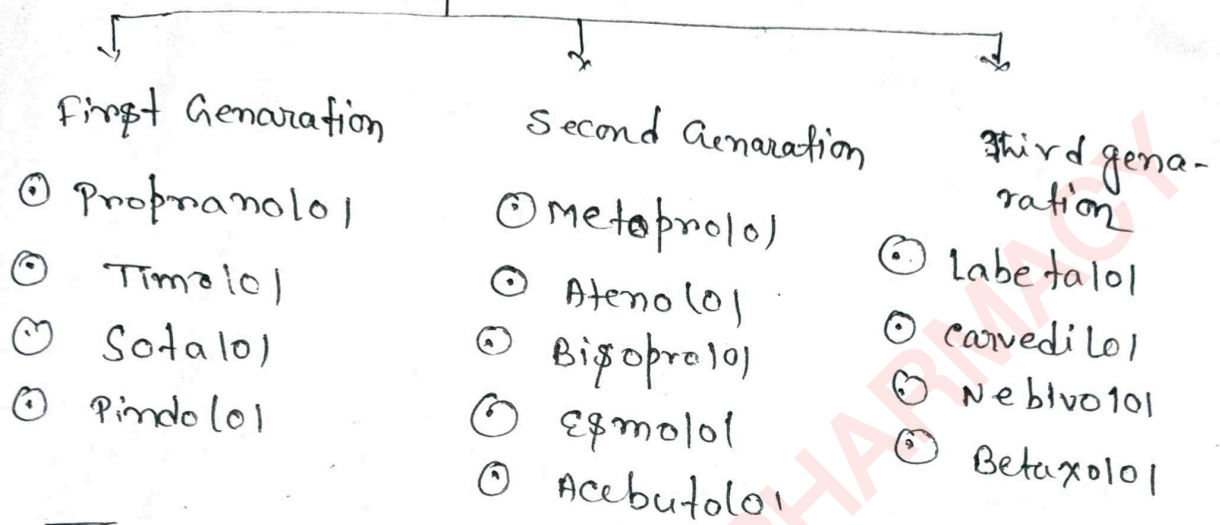 First Genaration
Propranolol
Timolol
Sotalol
Pindolol
Second Genaration
Metoprolol
Atenolol
Bisoprolol
Esmolol
Acebutolol
Third gena-
ration
Labetalol
Carvedilol
Neblvolol
Betaxolol
PHARMACY